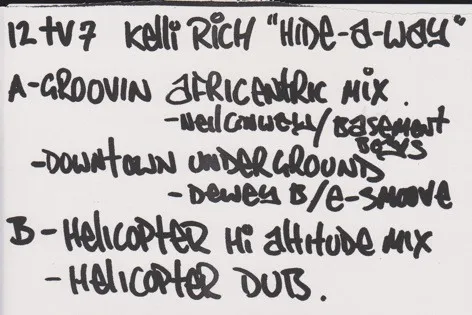 12 tV7 Kelli RicH "HiDE-a-waY"
A-GROOVIN aFRicENTRic Mix.
-Neil Conwell/Basement
Boys
-Downtown undergROUND
- Dewey B/E-Smoove
B - HelicopteR Hi attitude Mix
- HelicopteR DUB.